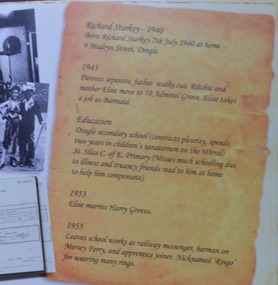 Richard Starkey - 1940
Born Richard Starkey 7th July 1940 at home
9 Madryn Street, Dingle.
1943
Parents separate, father walks out. Ritchie and
mother Elsie move to 10 Admiral Grove. Elsie takes
a job as Barmaid.
Education
Dingle secondary school (contracts pleurisy, spends
two years in children's sanatorium on the Wirral)
St. Silas C. of E. Primary (Misses much schooling due
to illness and truancy friends read to him at home
to help him compensate).
1953
Elsie marries Harry Groves.
1955
Leaves school works as railway messenger, barman on
Mersey Ferry, and apprentice joiner. Nicknamed 'Ringo'
for wearing many rings.